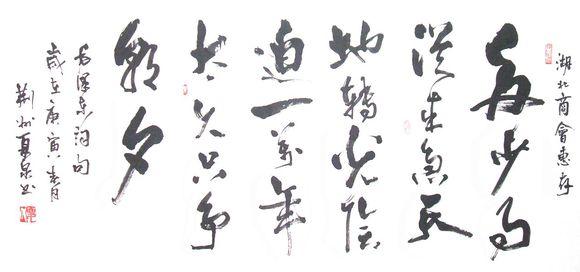 湖北商會惠存
多少事
從来急天
地轉光陰
迫一萬年
太久只争
朝夕
毛澤東词句
歲在庚寅春月
荆州夏泉书